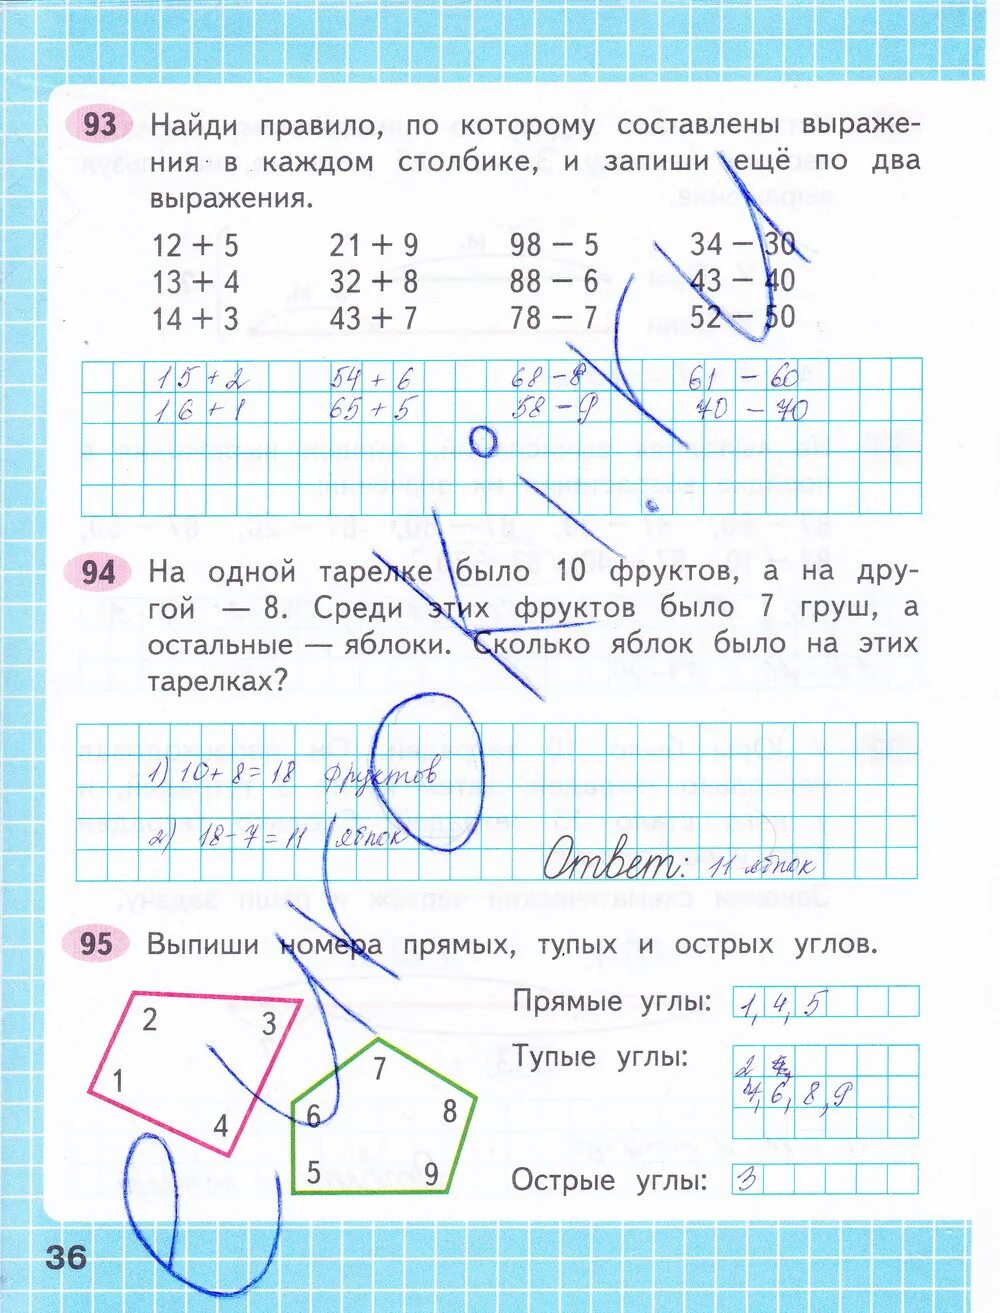 93 Найди правило, по которому составлены выраже-
ния в каждом столбике, и запиши ещё по два
выражения.
12 + 5 21 + 9 98 − 5 34 − 30
13 + 4 32 + 8 88 − 6 43 − 40
14 + 3 43 + 7 78 − 7 52 − 50
15 + 2 54 + 6 68 − 8 61 − 60
16 + 1 65 + 5 58 − 9 70 − 70
94 На одной тарелке было 10 фруктов, а на дру-
гой — 8. Среди этих фруктов было 7 груш, а
остальные — яблоки. Сколько яблок было на этих
тарелках?
1) 10 + 8 = 18 фруктов
2) 18 − 7 = 11 яблок
Ответ: 11 яблок
95 Выпиши номера прямых, тупых и острых углов.
Прямые углы: 1, 4, 5
Тупые углы: 2
7, 6, 8, 9
Острые углы: 3
2
3
1
4
7
6
8
5
9
36